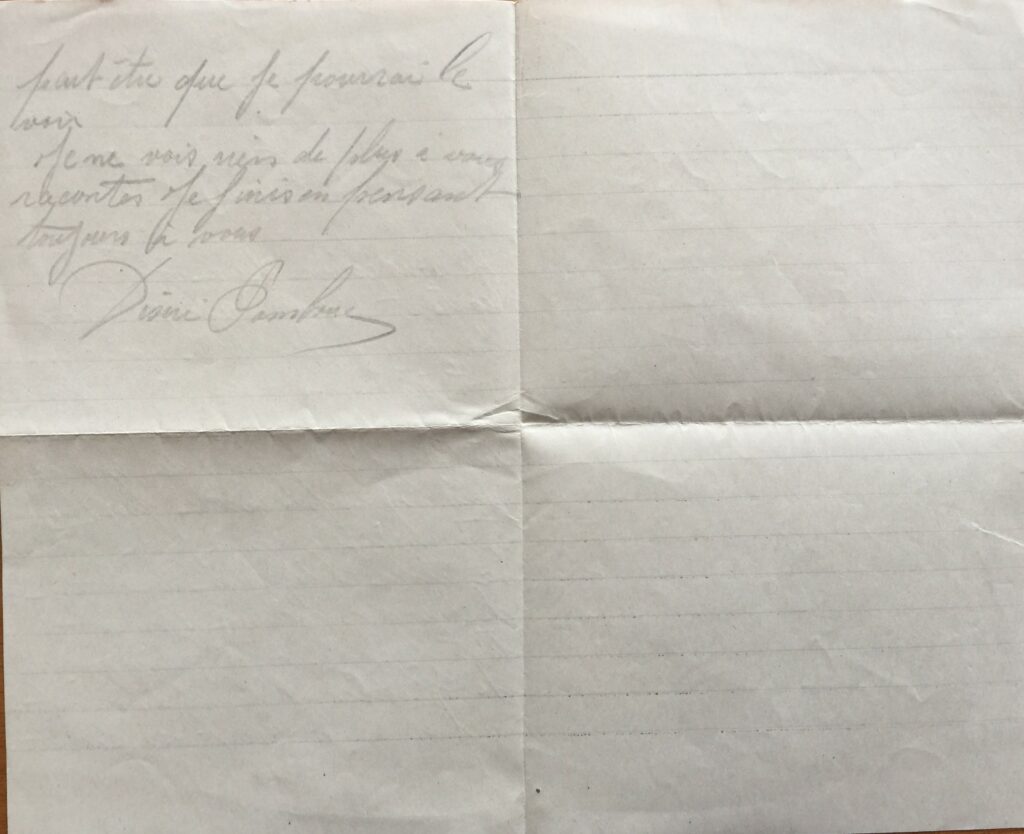 peut être que je pourrai le
voir
Je ne vois rien de plus a vous
raconter Je finis en pensant
toujours à vous
Désiré